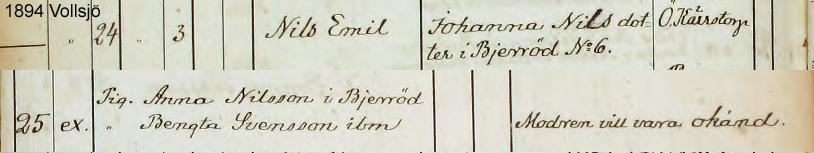 1894 Vollsjö
" 24 " 3 Nils Emil Johanna Nils dot- Ö. Kärrstorp
ter i Bjerröd No 6.
Pig. Anna Nilsson i Bjerröd
25 ex. " Bengta Svensson ibm Modren vill vara okänd.